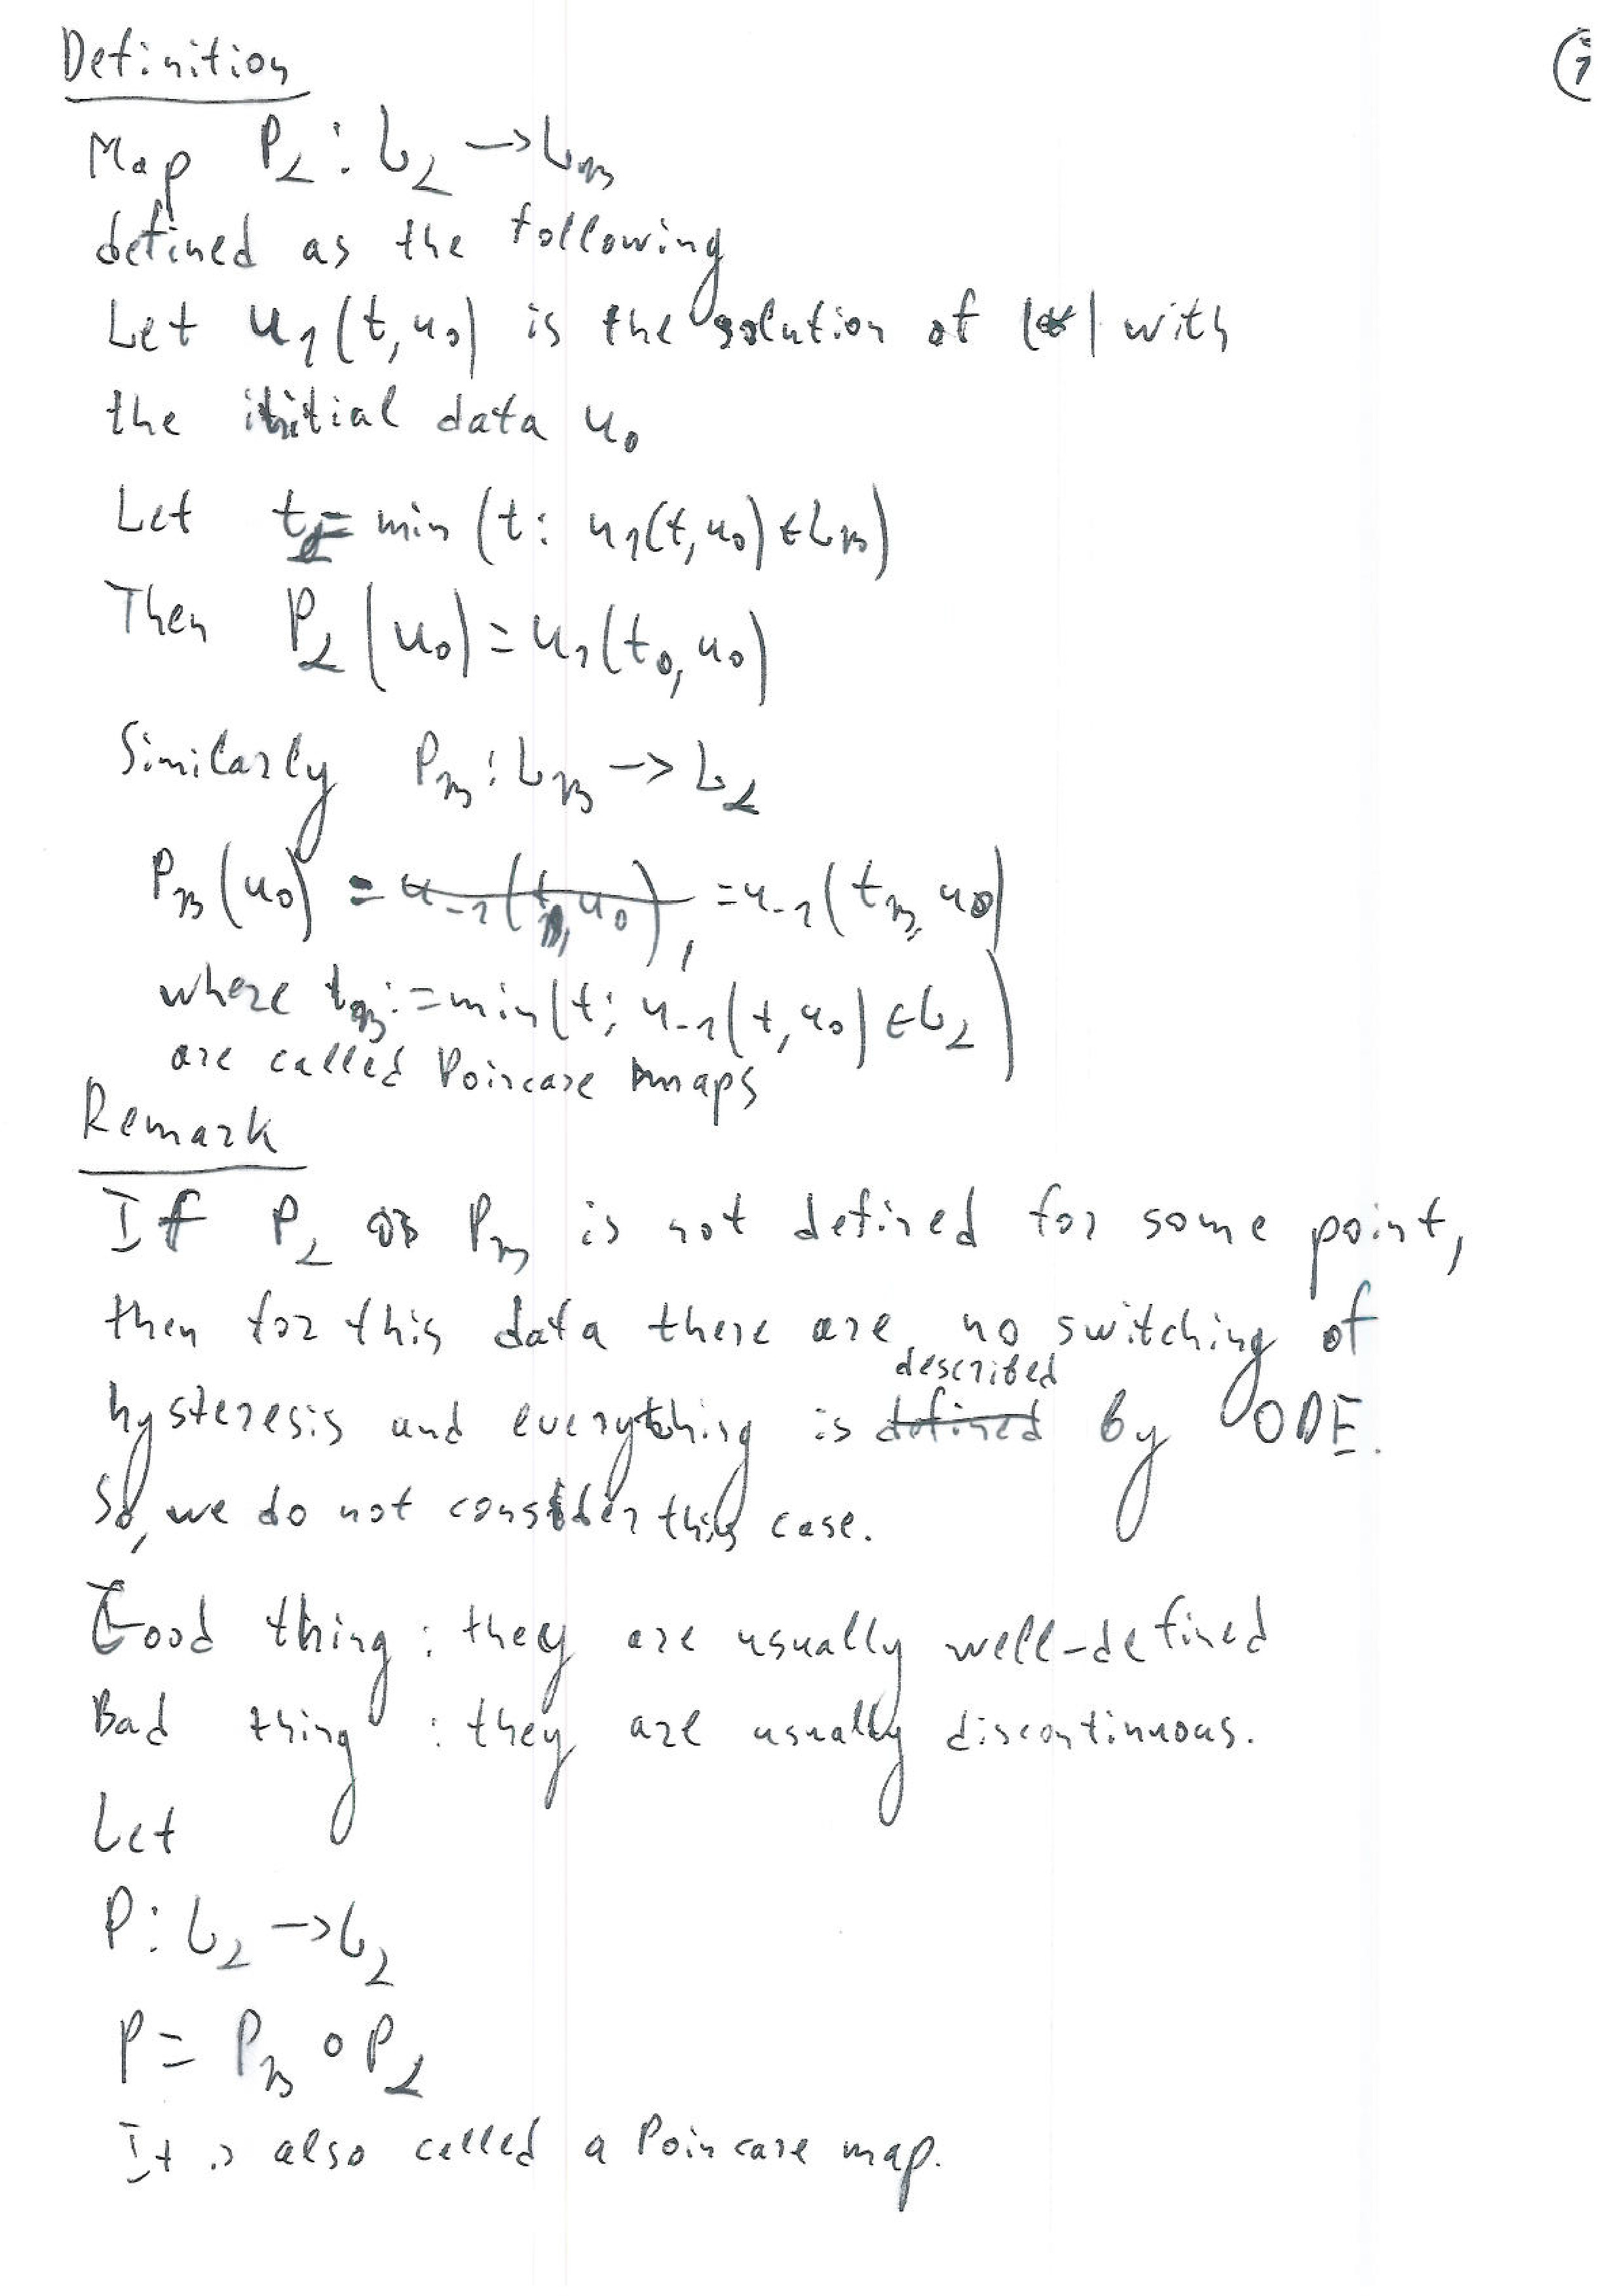 Definition
7
Map P_α : L_α → L_β
defined as the following
Let u_1(t, u_0) is the solution of (*) with
the initial data u_0
Let t_= min (t: u_1(t, u_0) ∈ L_β)
Then P_α(u_0) = u_1(t_0, u_0)
Similarly P_β : L_β → L_α
P_β(u_0) = u_{-1}(t_β, u_0), = u_{-1}(t_β, u_0)
where t_β := min(t; u_{-1}(t, u_0) ∈ L_α)
are called Poincare maps
Remark
If P_α or P_β is not defined for some point,
then for this data there are no switching of
described
hysteresis and everything is defined by ODE.
So, we do not consider this case.
Good thing : they are usually well-defined
Bad thing : they are usually discontinuous.
Let
P : L_α → L_α
P = P_β ∘ P_α
It is also called a Poincare map.